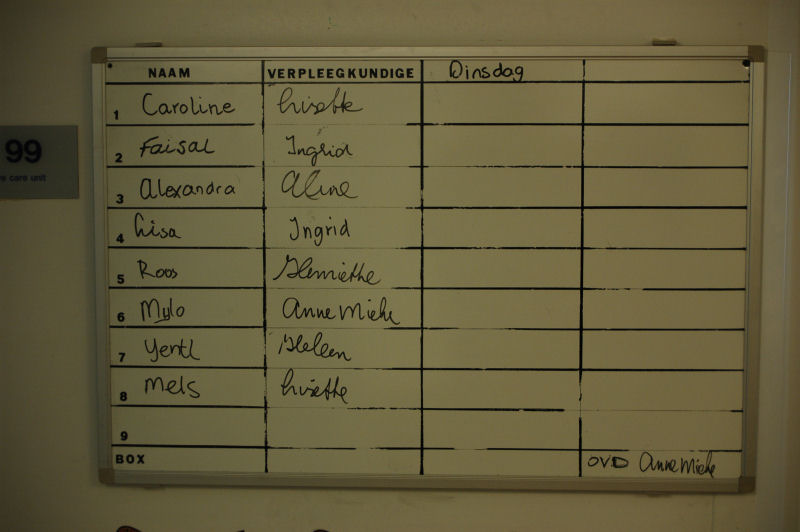 NAAM VERPLEEGKUNDIGE Dinsdag
1 Caroline Lisette
99
2 Faisal Ingrid
care unit
3 Alexandra Aline
4 Lisa Ingrid
5 Roos Henriëtte
6 Mylo AnneMieke
7 Yentl Heleen
8 Mels Lisette
9
BOX OVD AnneMieke